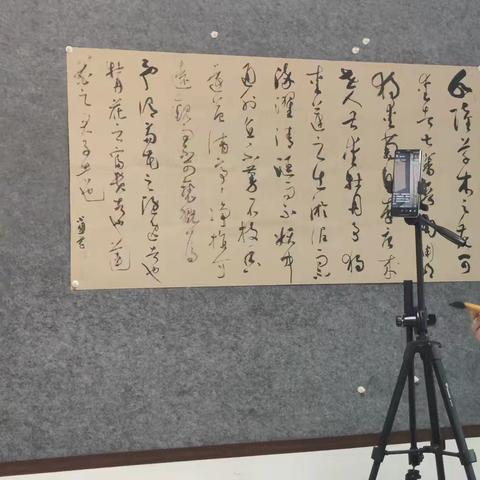 水陸草木之花可
愛者甚蕃晋陶渊明
独爱菊自李唐来
世人甚爱牡丹予独
爱莲之出淤泥而不
染濯清涟而不妖中
通外直不蔓不枝香
遠益清亭亭净植可
遠觀而不可亵玩焉
予谓菊花之隐逸者也
牡丹花之富贵者也莲
花之君子者也